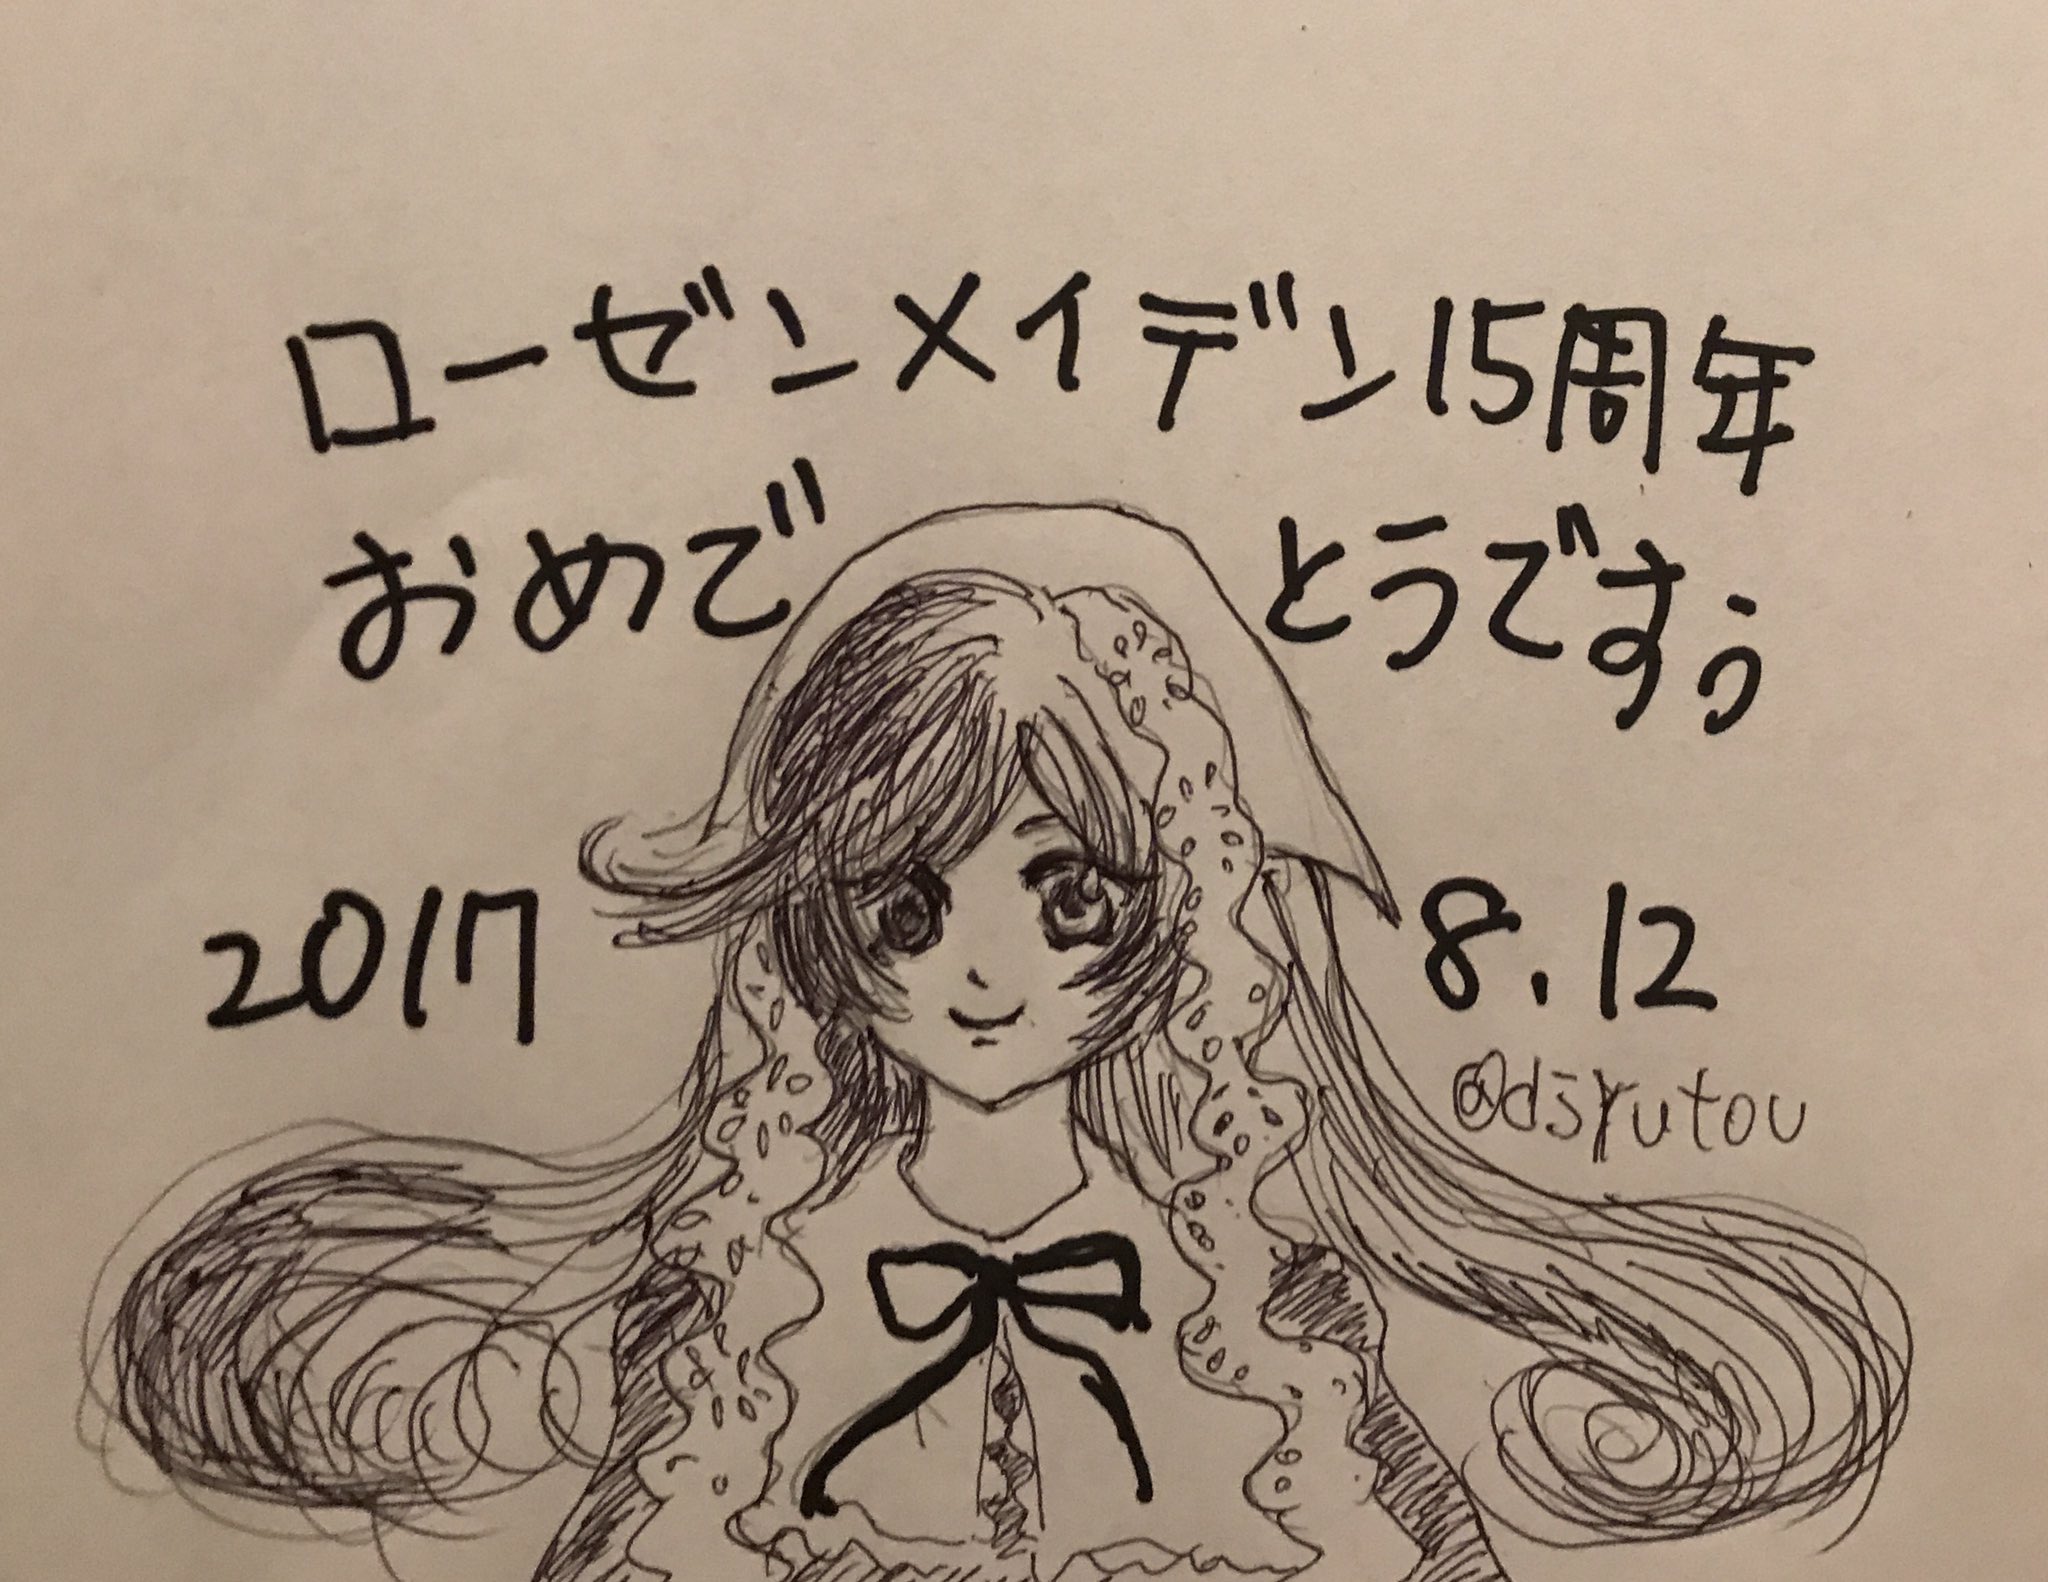 ローゼンメイデン15周年
おめでとうですぅ
2017 8.12
@dsrutou